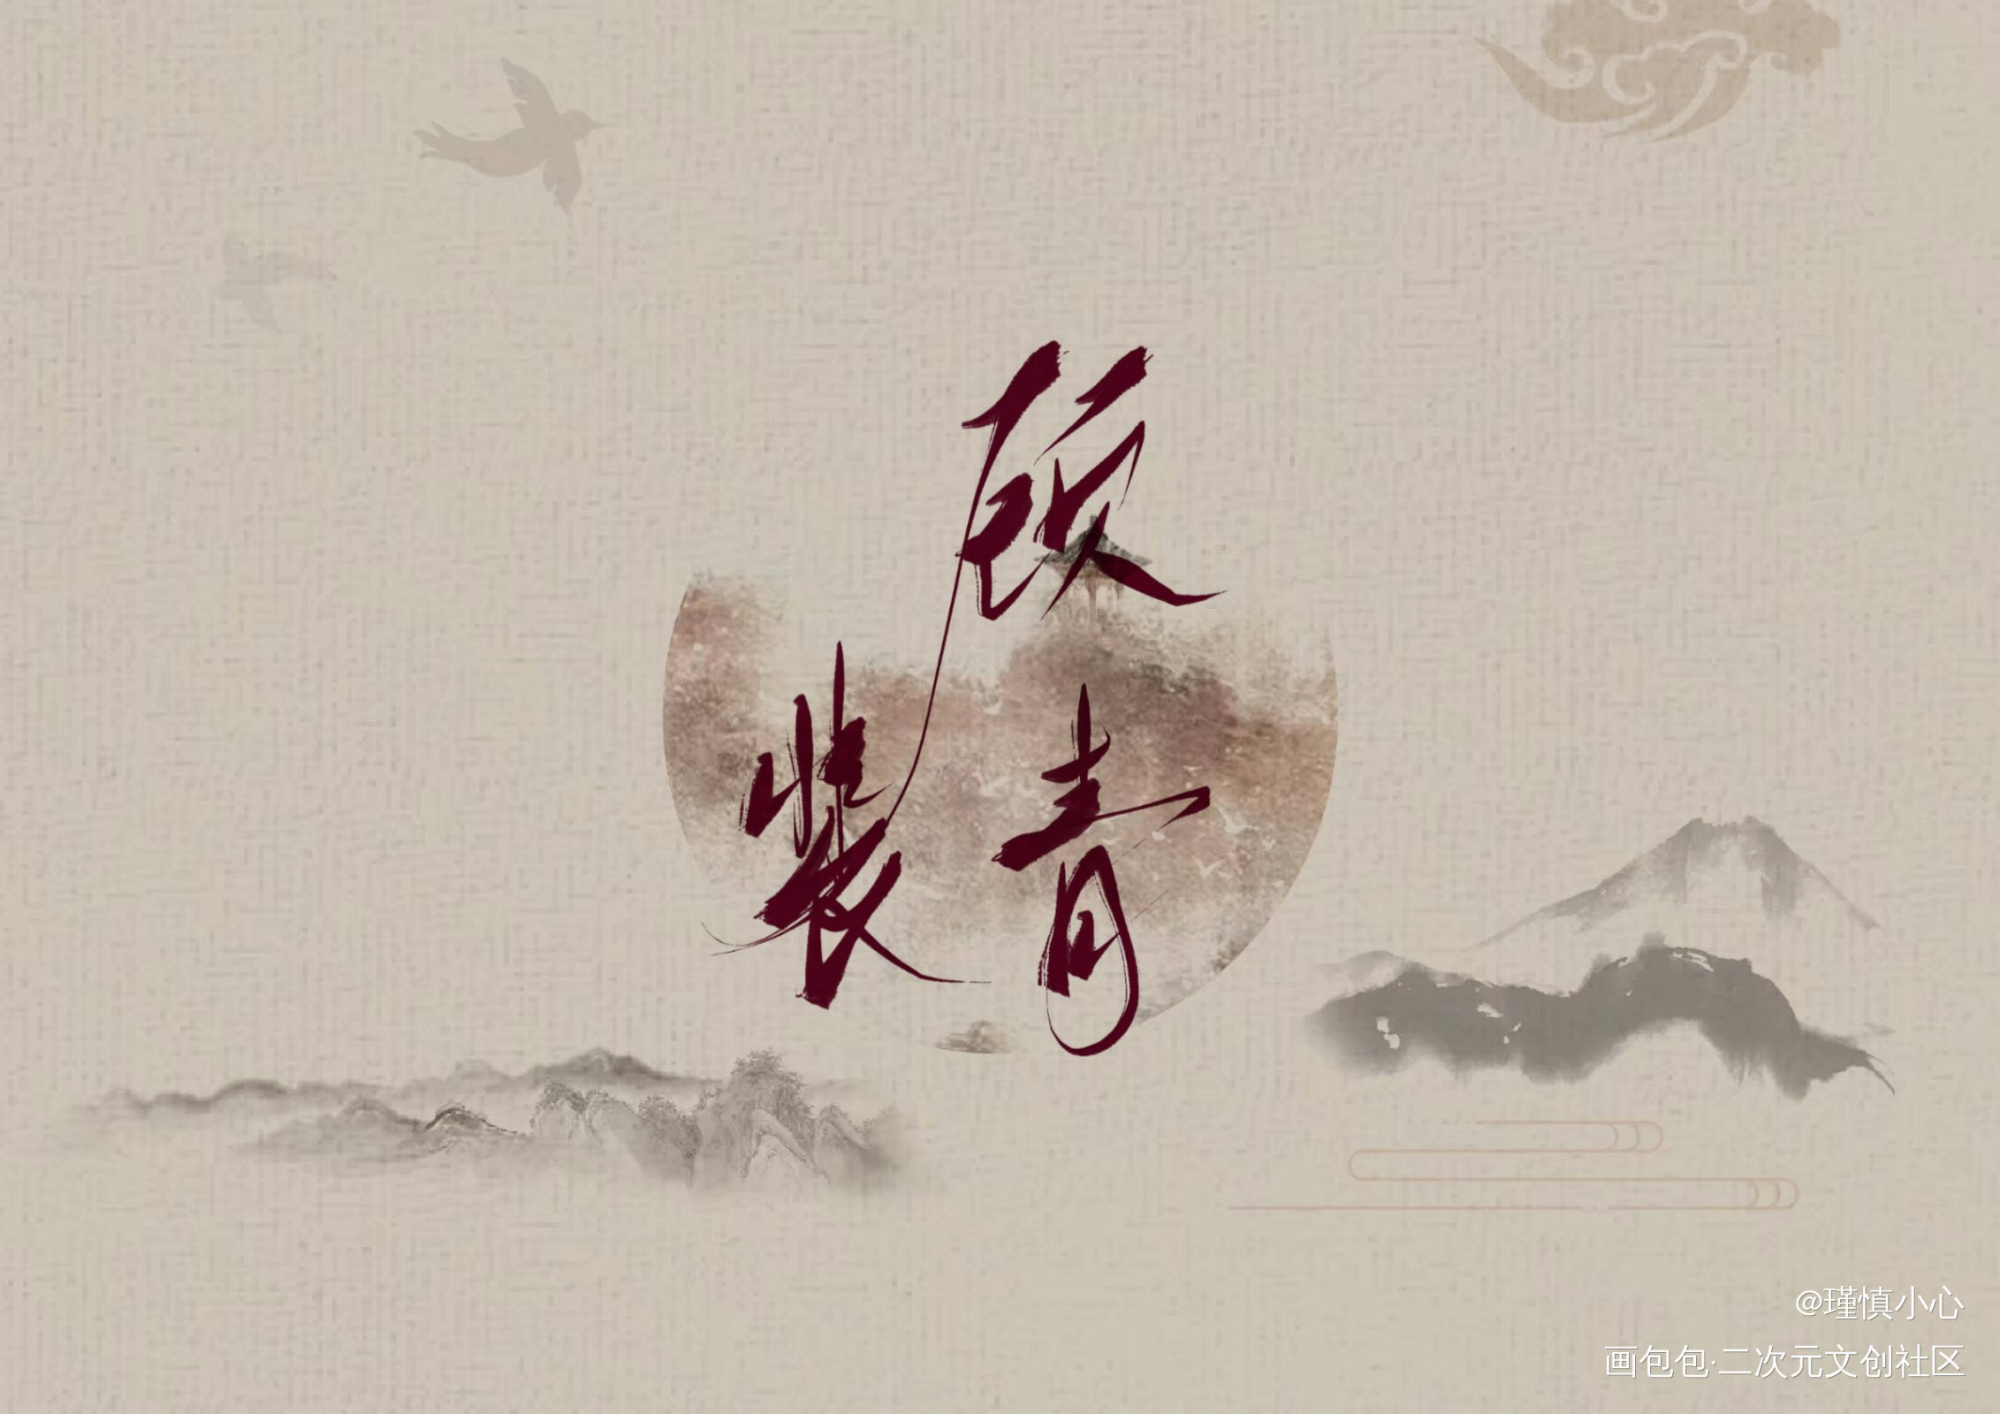 顾
青
裴
@瑾慎小心
画包包·二次元文创社区